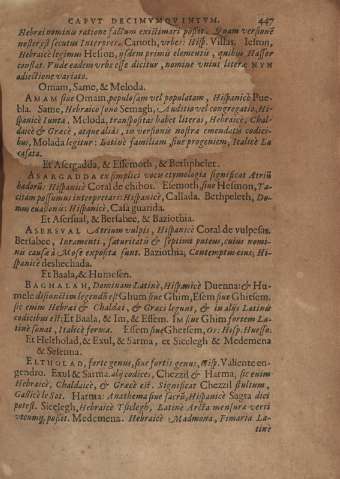 CAPVT DECIMVMQVINTVM. 447
Hebrai nominis ratione factum existimari posset. Quam versionē
noster est secutus Interpres. Carioth, vrbes: Hisp. Villas. Iesion,
Hebraicè legimus Hesion, ijsdem primis elementis, quibus Hassor
constat. Vnde eadem vrbs esse dicitur, nomine vnius literæ NVN
adiectione variato.
Omam, Same, & Meloda.
AMAM siue Omam, populosam vel populatam, Hispanicè Pue-
bla. Same, Hebraicè sono Semagh, Auditus vel congregatio, His-
panicè Iunta. Meloda, transpositas habet literas, Hebraicè, Chal-
daicè & Græcè, atque aliàs, in versionis nostra emendatis codici-
bus, Molada legitur: Latinè familiam, siue progeniem, Italicè La
casata.
Et Asergadda, & Essemoth, & Bethphelet.
ASARGADDA ex simplici vocis etymologia significat Atriū
hædorū: Hispanicè Coral de chibos. Esemoth, siue Hesmon, Ta-
citam possumus interpretari: Hispanicè, Callada. Bethpeleth, Do-
mum euasionis: Hispanicè, Casa guarida.
Et Asersual, & Bersabee, & Baziothia.
ASERSVAL Atrium vulpis, Hispanicè Coral de vulpejas.
Bersabee, Iuramenti, saturitatis & septima puteus, cuius nomi-
nis causæ à Mose exposita sunt. Baziothia, Contemptus eius, Hi-
spanicè deshechada.
Et Baala, & Humesen.
BAGHALAH, Dominam Latinè, Hispanicè Duenna: & Hu-
mele disiunctim legendū est Ghum siue Ghim, Esem siue Ghesem.
sic enim Hebræi & Chaldæi, & Græci legunt, & in alijs Latinis
codicibus est: Et Baala, & Im, & Essem. IM siue Ghim fortem La-
tinè sonat, Italicè forma. Essem siue Gheesem, Os: Hisp. Huesso.
Et Heltholad, & Exul, & Sarma, & Siceleg & Medemena
& Sesenna.
ELTHOLAD, fortè genus, siue fortis genus, Hisp. Valiente en-
gendro. Exul & Sarma. alij codices, Chezzil & Harma, sic enim
Hebraicè, Chaldaicè, & Græcè est. Significat Chezzil stultum,
Gallicè le Sot. Harma: Anathema siue sacrū, Hispanicè Sagra dici
potest. Siceleg, Hebraicè Tsicelegh, Latinè Arcta mensura verti
vtcumq; possit. Medemena. Hebraicè Madmona, Fimaria La-
tinè